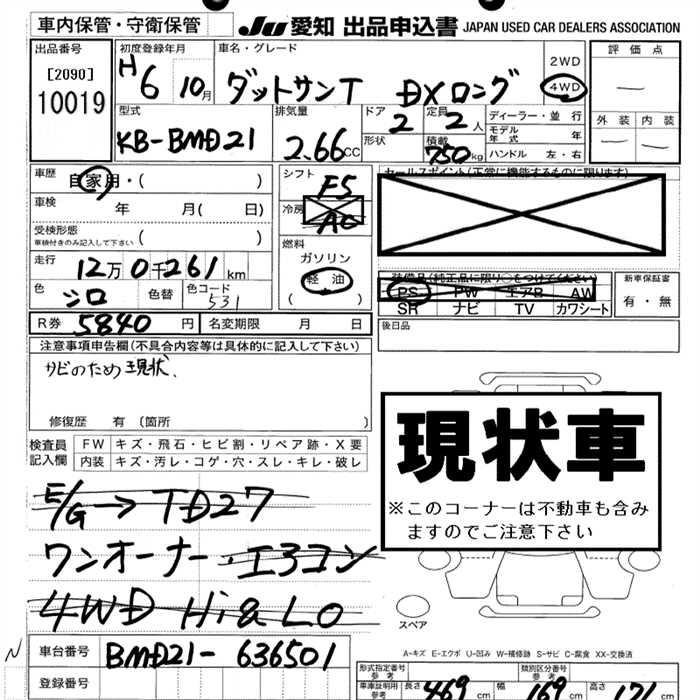 車内保管・守衛保管
JU 愛知 出品申込書 JAPAN USED CAR DEALERS ASSOCIATION
出品番号
[2090]
10019
初度登録年月
H6 10月
車名・グレード
ダットサンT DXロング
2WD
4WD
評価点
―
外装 内装
― ―
型式
KB-BMD21
排気量
2.66cc
ドア
2
形状
定員
2人
積載
750kg
ディーラー・並行
モデル年式 年
ハンドル 左・右
車歴
自家用・( )
車検
年 月( 日)
受検形態
車検付きのみ記入して下さい ( )
走行
12万0千261km
色
シロ
色替
色コード
531
シフト
F5
冷房
AC
燃料
ガソリン
(軽油)
セールスポイント(正常に機能するものに限ります)
装備品(純正品に限り○をつけてください)
PS PW エアB AW
SR ナビ TV カワシート
新車保証書
有・無
後日品
R券 5840円
名変期限 月 日
注意事項申告欄(不具合内容等は具体的に記入して下さい)
サビのため現状、
修復歴 有 (箇所 )
検査員記入欄
FW キズ・飛石・ヒビ割・リペア跡・X要
内装 キズ・汚レ・コゲ・穴・スレ・キレ・破レ
E/G→TD27
ワンオーナー・エアコン
4WD Hi&Lo
現状車
※このコーナーは不動車も含み
ますのでご注意下さい
スペア
A-キズ E-エクボ U-凹み W-補修跡 S-サビ C-腐食 XX-交換済
N
車台番号
BMD21-636501
登録番号
形式指定番号
参考
類別区分番号
参考
車庫証明用
参考
長さ 469cm
幅 169cm
高さ 171cm